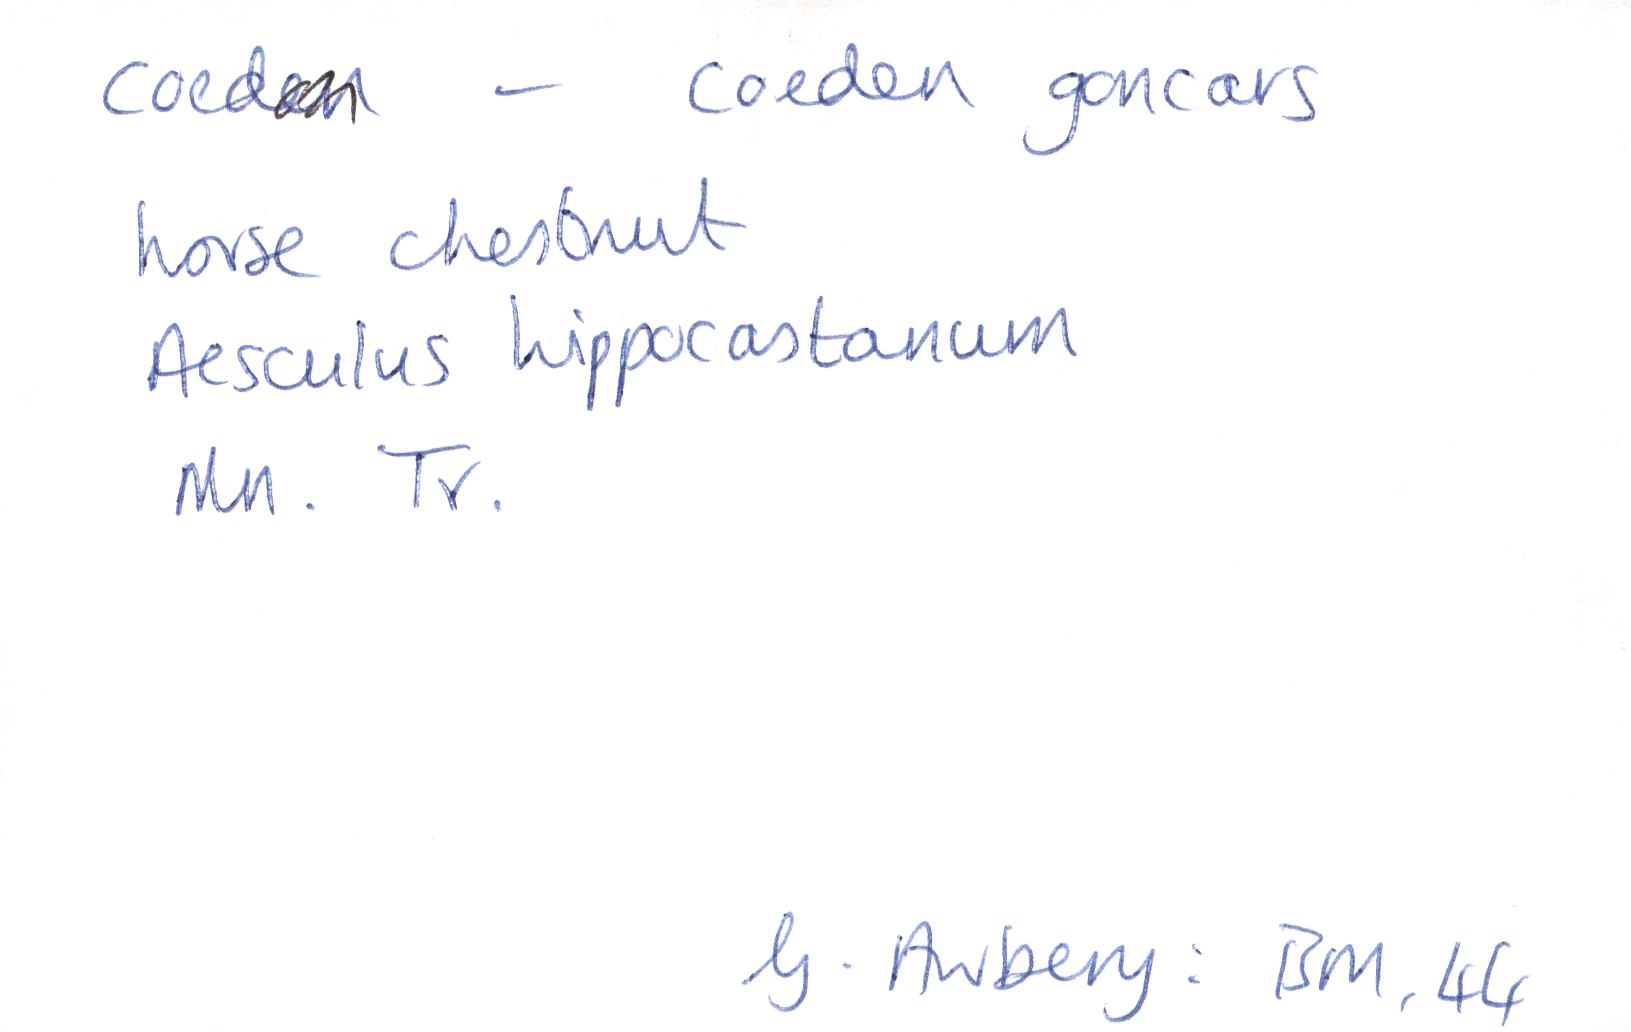 coed – coeden goncars
horse chestnut
Aesculus hippocastanum
Mn. Tr.
G. Awbery: BM, 44